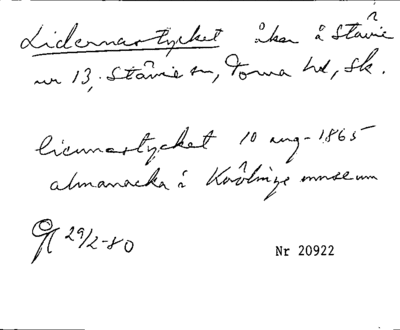 Lidernastycket åker å Stävie
nr 13, Stävie sn, Torna hd, Sk.
licernastycket 10 aug. 1865
almanacka i Kävlinge museum
29/2-80
Nr 20922